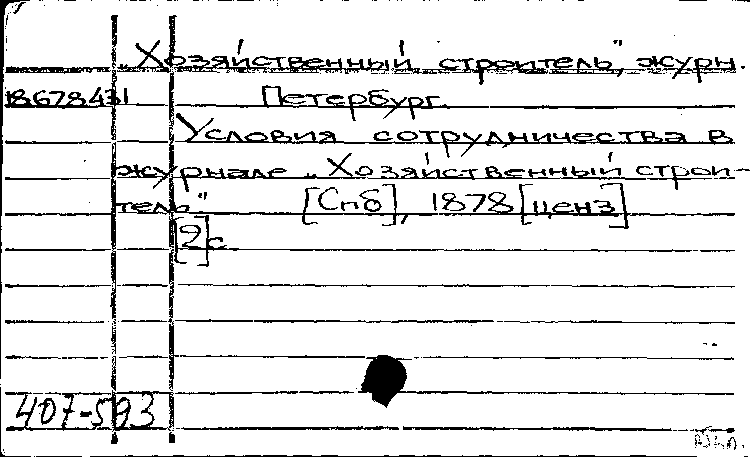 „Хозяйственный строитель", журн.
18678431 Петербург.
Условия сотрудничества в
журнале „Хозяйственный строи-
тель" [Спб], 1878 [ценз]
[2] с.
407-593